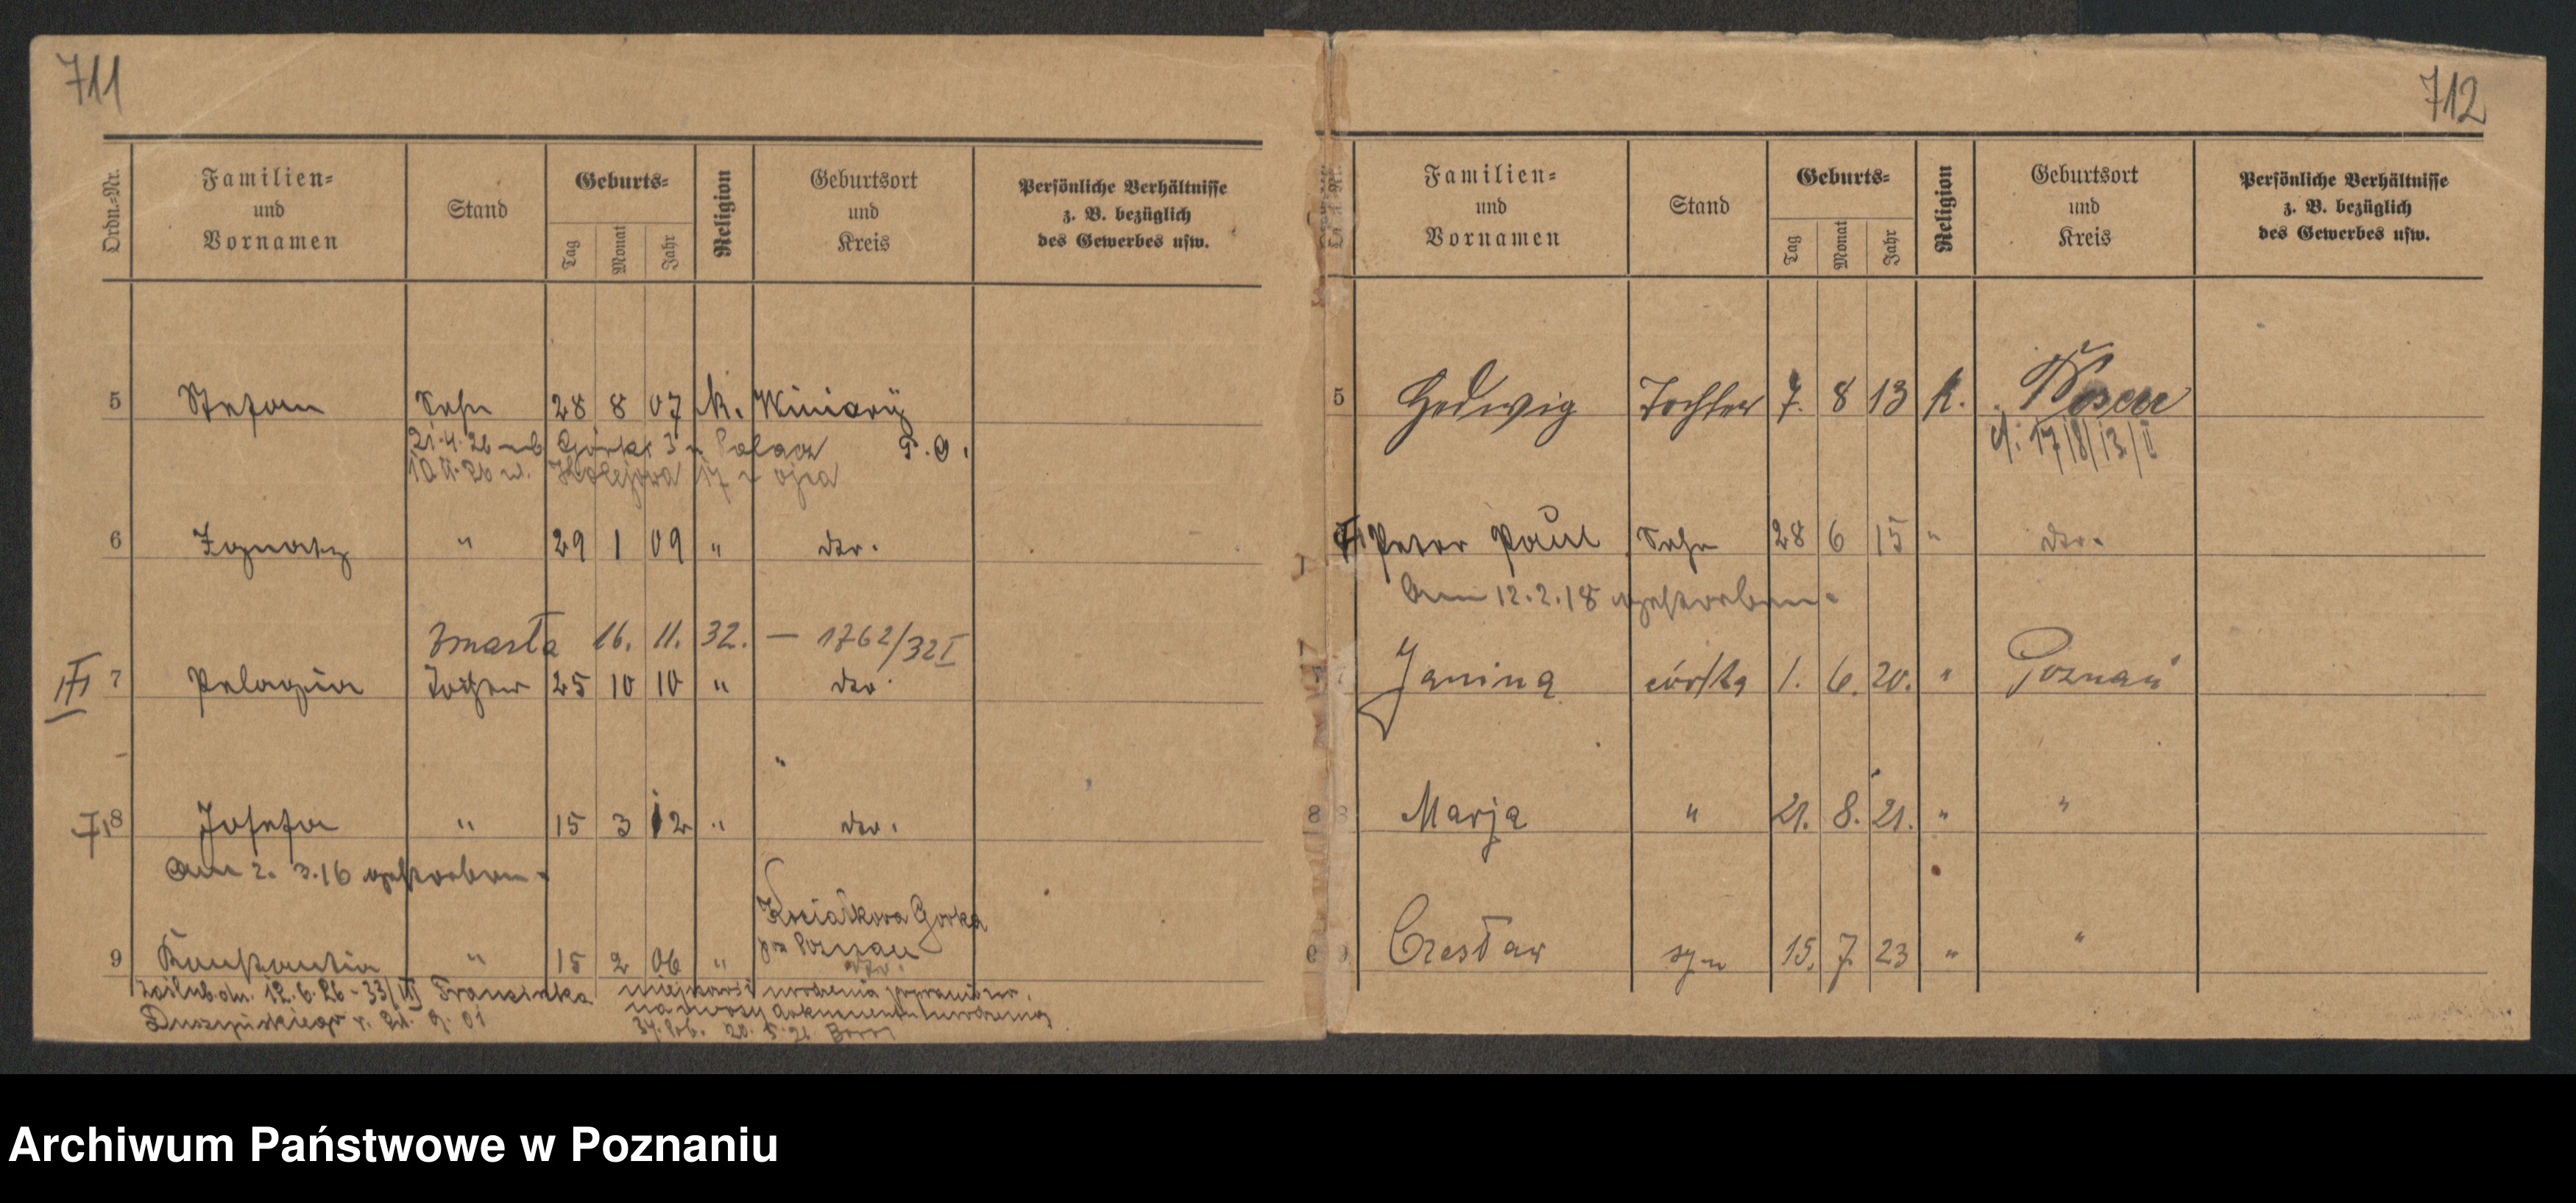 711
Ordn.-Nr.
Familien-
und
Vornamen
Stand
Geburts-
Tag
Monat
Jahr
Religion
Geburtsort
und
Kreis
Persönliche Verhältnisse
z. B. bezüglich
des Gewerbes usw.
5 Stefan Sohn 28 8 07 k. Winiary
21.4.26 Górki 3 Palacz P.O.
10 17 u ojca
6 Ignatz " 29 1 09 " do.
zmarła 16. 11. 32. — 1762/32 I
7 Pelagia Tochter 25 10 10 " do.
8 Josefa " 15 3 12 " do.
Am 2. 3.16 gestorben.
Gorka
Poznan
9 Konstantia " 15 2 06 " do.
zaślub. dn. 12.6.26 - 33/III Franciszka urodzenia
Duszyńskiego r. 21. 9. 01
20. 5. 26
712
Familien-
und
Vornamen
Stand
Geburts-
Tag
Monat
Jahr
Religion
Geburtsort
und
Kreis
Persönliche Verhältnisse
z. B. bezüglich
des Gewerbes usw.
5 Hedwig Tochter 7. 8 13 k. Posen
17/8/13/II
Peter Paul Sohn 28 6 15 " do.
Am 12.2.18 gestorben.
Janina córka 1. 6. 20. " Poznań
8 Marja " 21. 8. 21. " "
9 Czesław syn 15. 7. 23 " "
Archiwum Państwowe w Poznaniu